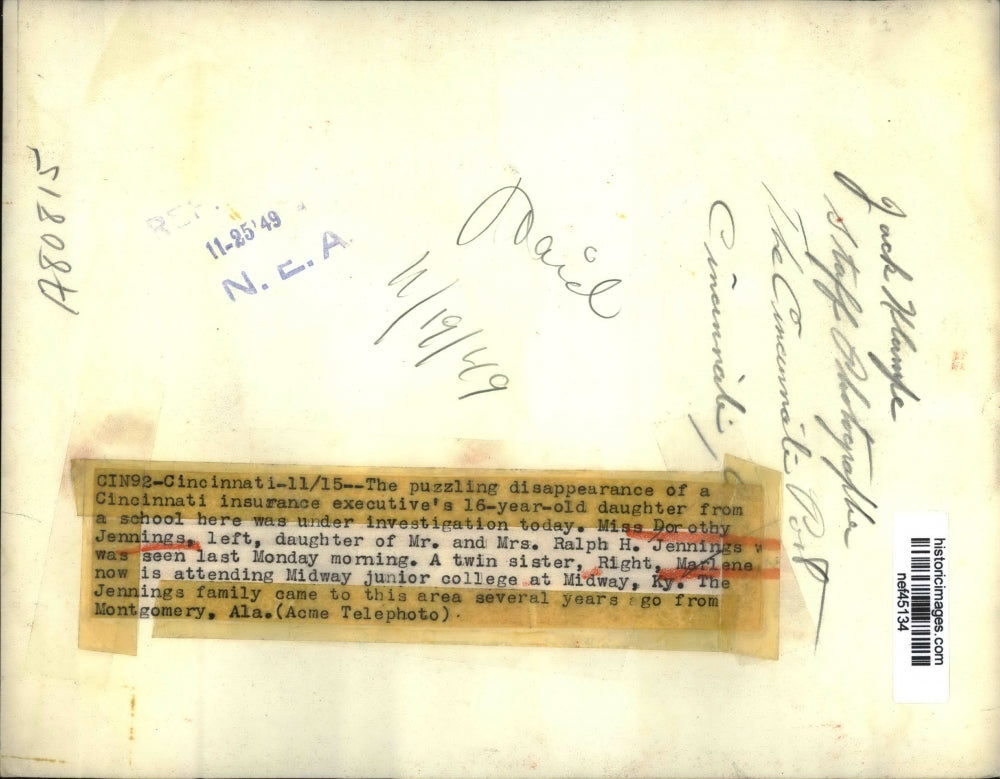 A80815
REF.
11-25'49
N.E.A
Paid
11/19/49
Jack Klumpe
Staff Photographer
The Cincinnati Post
Cincinnati,
CIN92-Cincinnati-11/15--The puzzling disappearance of a
Cincinnati insurance executive's 16-year-old daughter from
a school here was under investigation today. Miss Dorothy
Jennings, left, daughter of Mr. and Mrs. Ralph H. Jennings w
was seen last Monday morning. A twin sister, Right, Marlene
now is attending Midway junior college at Midway, Ky. The
Jennings family came to this area several years ago from
Montgomery, Ala.(Acme Telephoto)
historicimages.com
nef45134